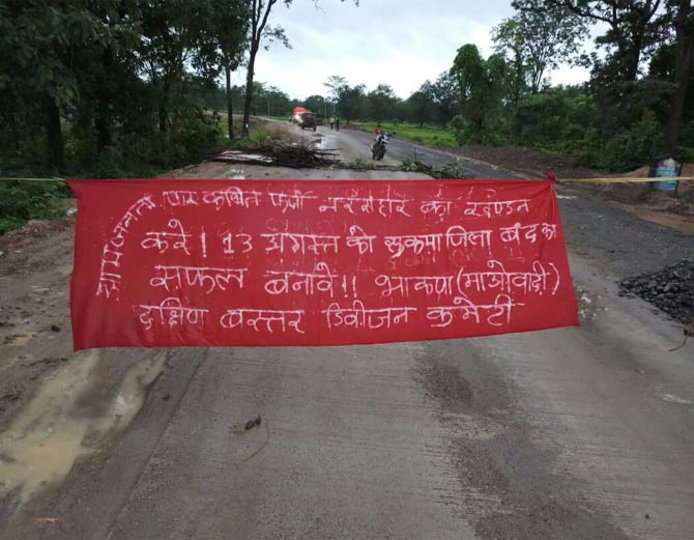 आम जनता पर कथित फर्जी नरसंहार का खण्डन
करे। 13 अगस्त को सुकमा जिला बंद का
सफल बनावे!! भाकपा (माओवादी)
दक्षिण बस्तर डिवीजन कमेटी